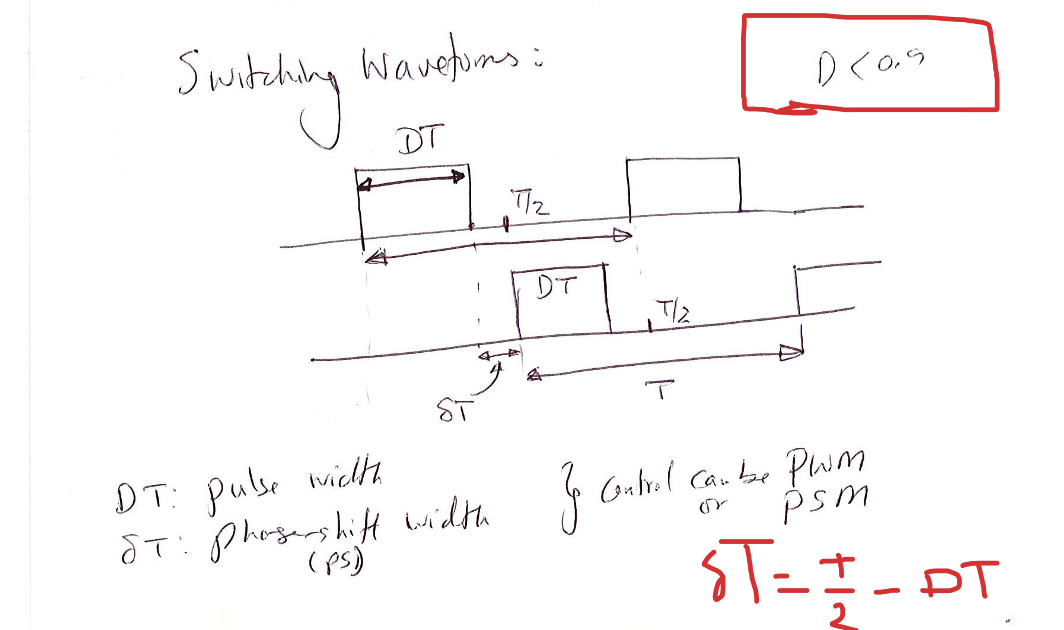 Switching Waveforms:
D < 0.5
DT
T/2
DT
T/2
δT
T
DT: pulse width
δT: phase-shift width
(PS)
} Control can be PWM
or PSM
δT = T/2 - DT